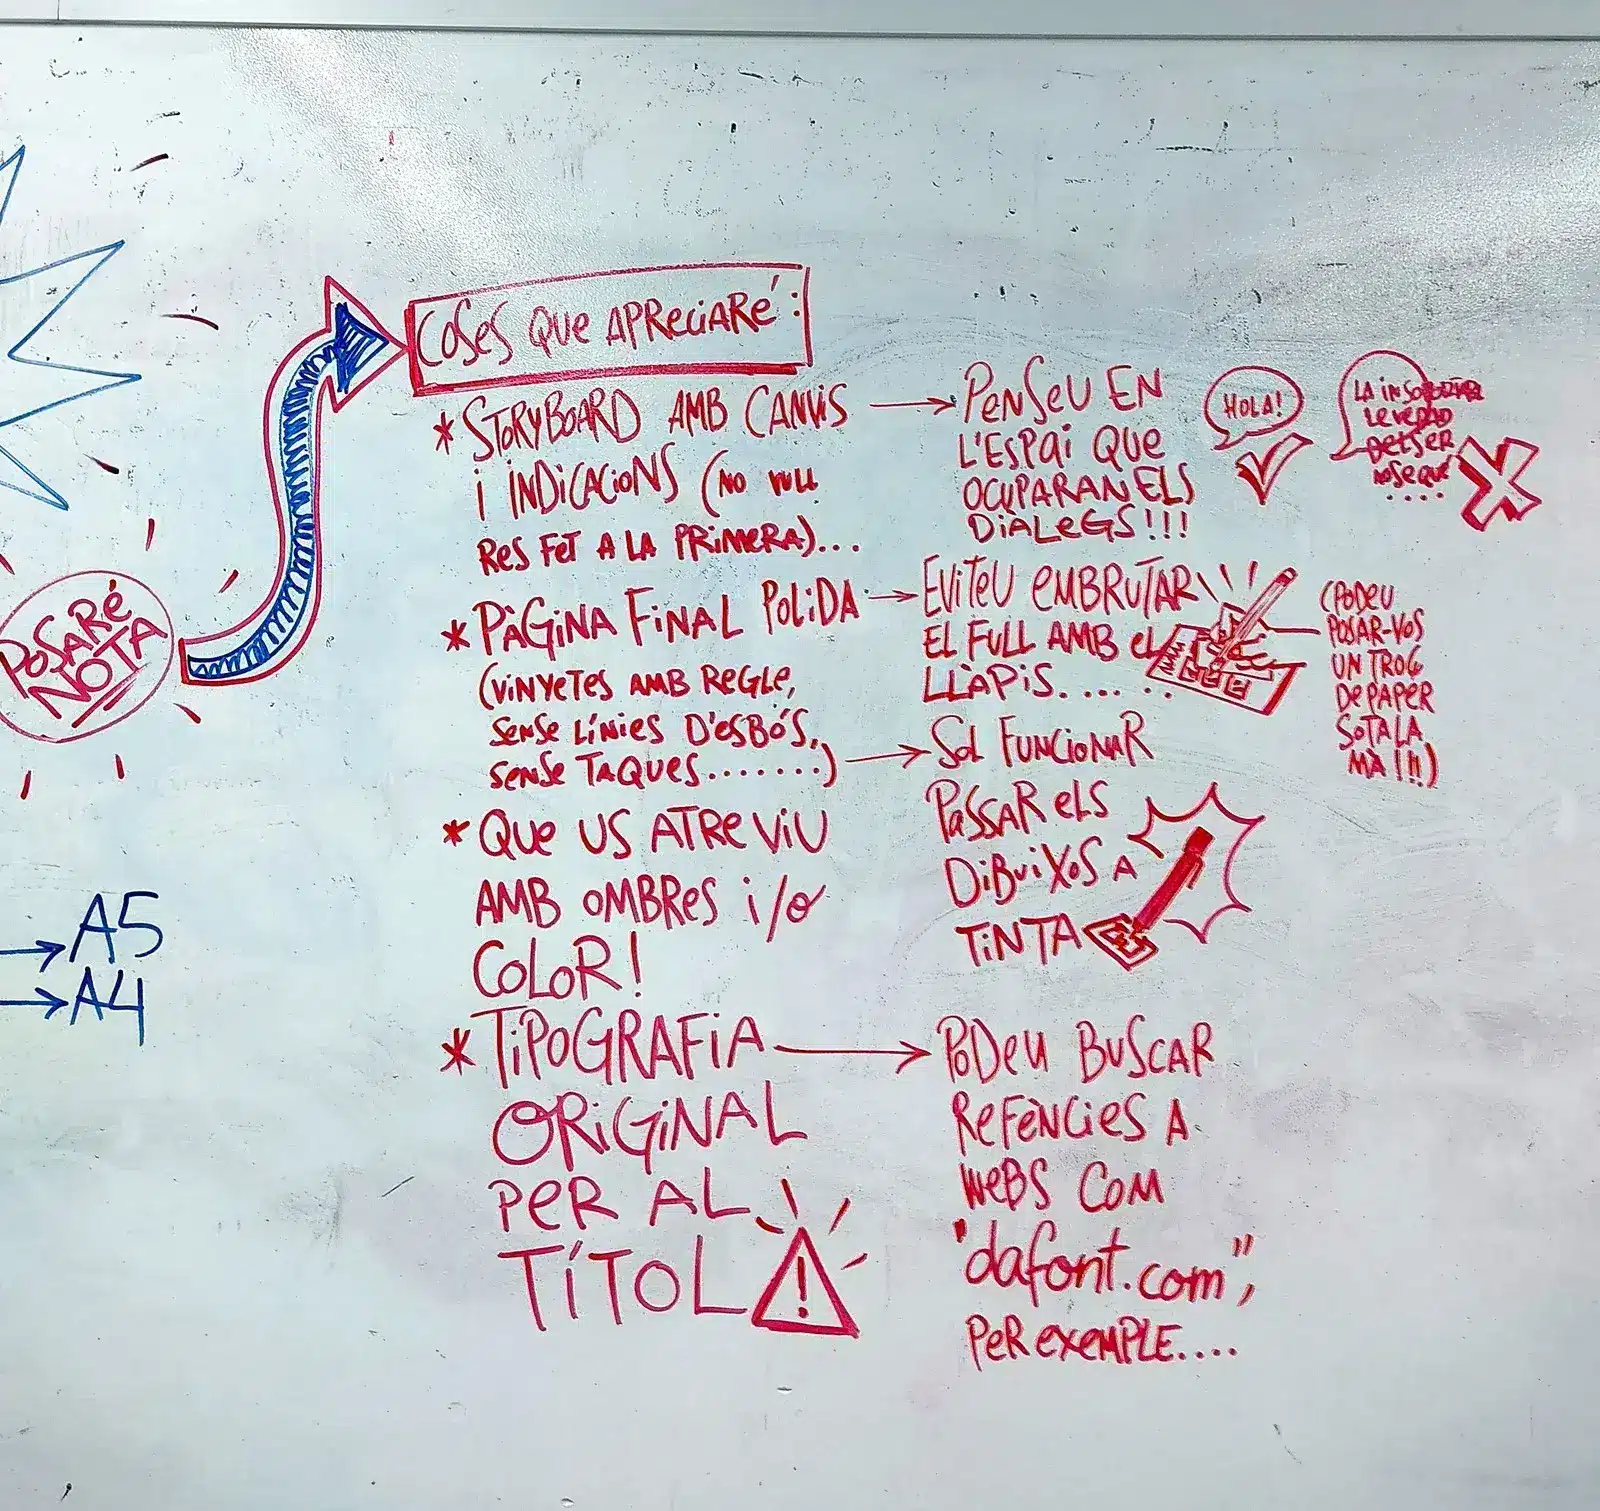 POSARÉ
NOTA
A5
A4
COSES QUE APRECIARÉ:
* STORYBOARD AMB CANVIS
I INDICACIONS (NO VULL
RES FET A LA PRIMERA)...
PENSEU EN
L'ESPAI QUE
OCUPARAN ELS
DIALEGS!!!
HOLA!
LA INSOPORTABLE
LEVEDAD
DEL SER
NO SE QUÉ
....
* PÀGINA FINAL POLIDA
(VINYETES AMB REGLE,
SENSE LÍNIES D'ESBÓS,
SENSE TAQUES.......)
EVITEU EMBRUTAR
EL FULL AMB EL
LLÀPIS......
(PODEU
POSAR-VOS
UN TROÇ
DE PAPER
SOTA LA
MÀ!!!)
SOL FUNCIONAR
PASSAR ELS
DIBUIXOS A
TINTA
* QUE US ATREVIU
AMB OMBRES I/O
COLOR!
* TIPOGRAFIA
ORIGINAL
PER AL
TÍTOL
!
PODEU BUSCAR
REFÈNCIES A
WEBS COM
"dafont.com",
PER EXEMPLE....